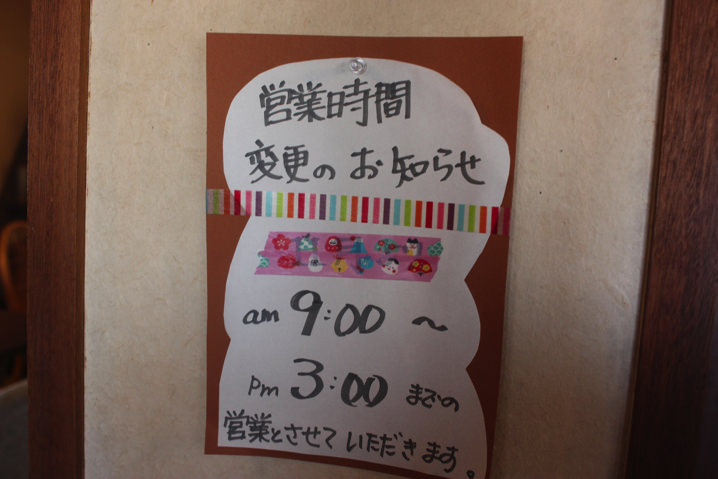 営業時間
変更のお知らせ
am 9:00 〜
pm 3:00 までの
営業とさせていただきます。